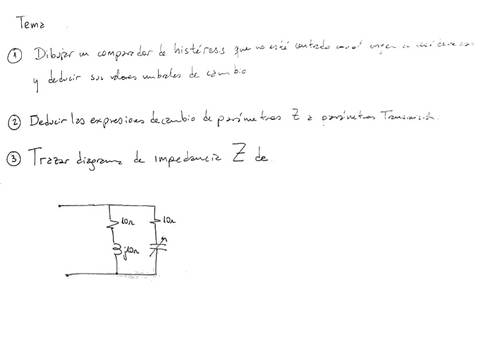 Tema
① Dibujar un comparador de histéresis que no esté centrado en el origen
y deducir sus valores umbrales de cambio
② Deducir las expresiones de cambio de parámetros Z a parámetros Transmisión.
③ Trazar diagrama de impedancia Z de
10Ω 10Ω
j10Ω